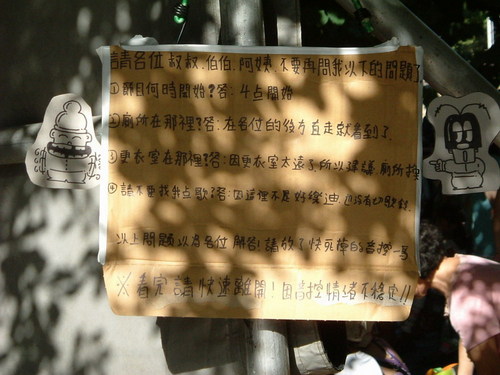 請各位叔叔、伯伯、阿姨、不要再問我以下的問題了
①節目何時開始?答:4点開始
②廁所在那裡?答:在各位的後方直走就看到了.
③更衣室在那裡?答:因更衣室太遠了,所以建議廁所換
④請不要找我点歌?答:因這裡不是好樂迪
以上問題以為各位解答!請放了快死掉的音控一馬
※看完請快速離開!因音控情緒不穩定!!